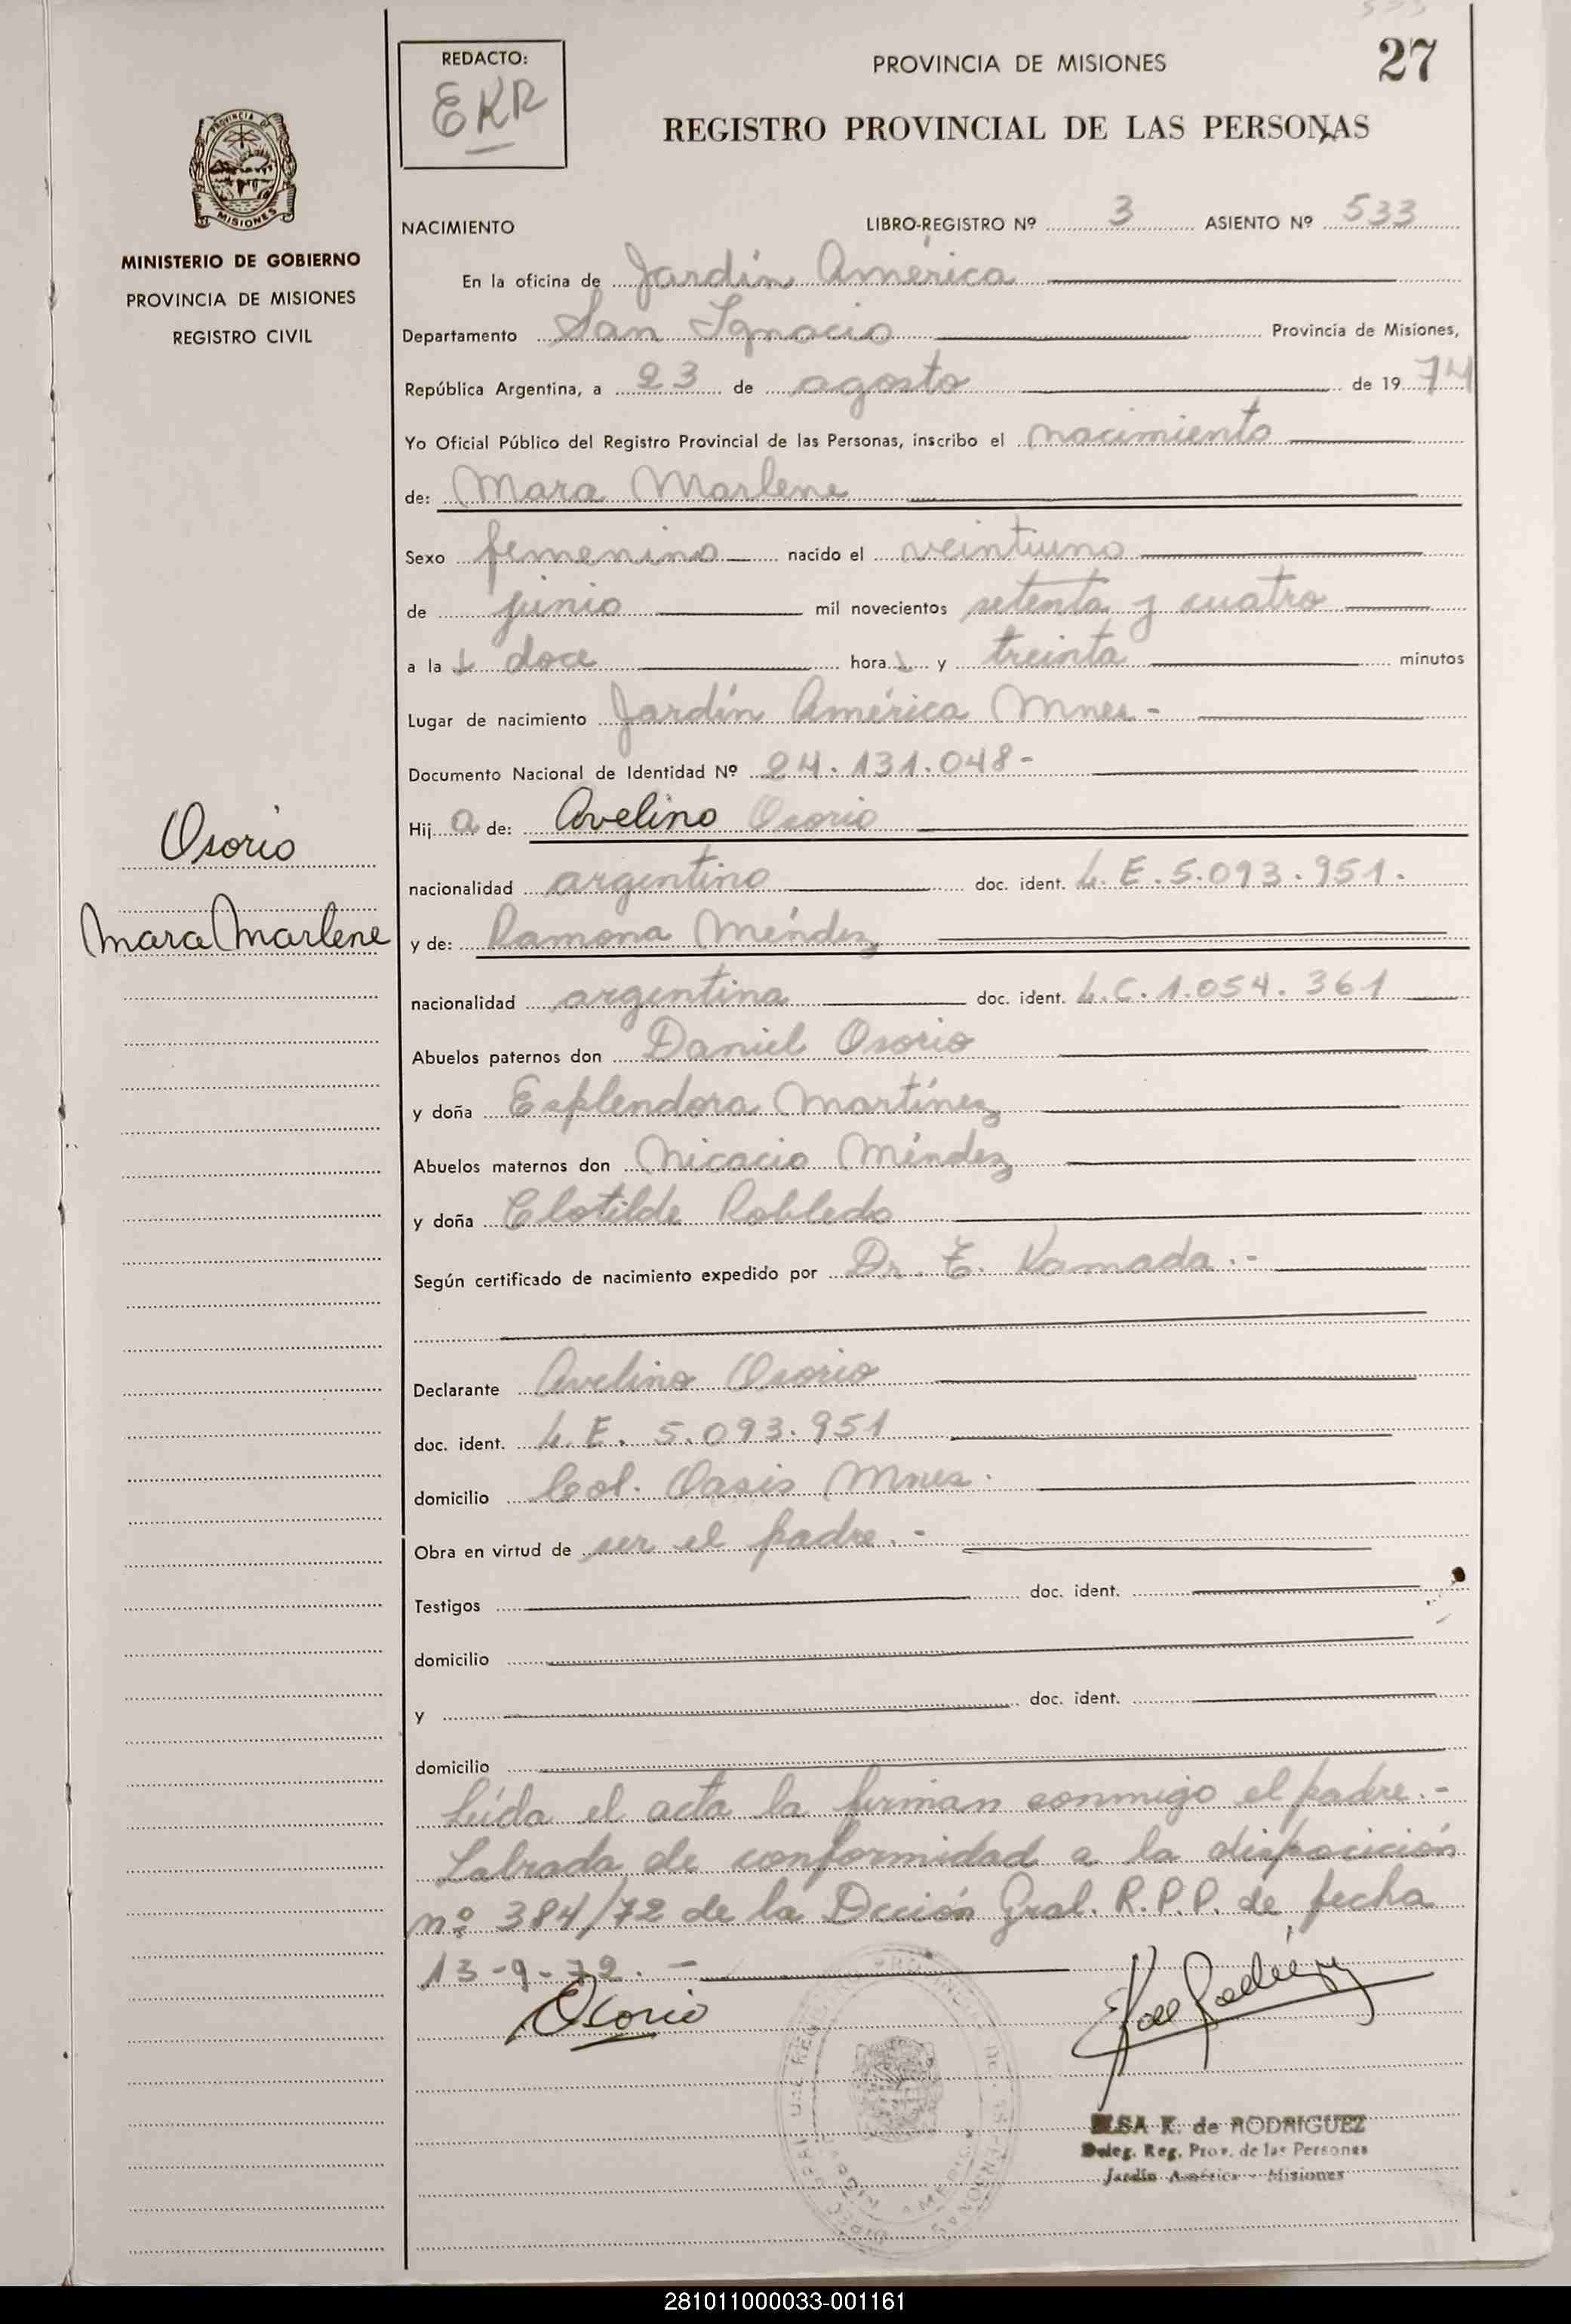 27
REDACTO:
EKR
PROVINCIA DE MISIONES
REGISTRO PROVINCIAL DE LAS PERSONAS
MISIONES
MINISTERIO DE GOBIERNO
PROVINCIA DE MISIONES
REGISTRO CIVIL
NACIMIENTO LIBRO-REGISTRO Nº 3 ASIENTO Nº 533
En la oficina de Jardín América
Departamento San Ignacio Provincia de Misiones,
República Argentina, a 23 de agosto de 1974
Yo Oficial Público del Registro Provincial de las Personas, inscribo el nacimiento
de: Mara Marlene
Sexo femenino nacido el veintiuno
de junio mil novecientos setenta y cuatro
a la doce hora y treinta minutos
Lugar de nacimiento Jardín América Mnes -
Documento Nacional de Identidad Nº 24.131.048-
Hija de: Avelino Osorio
Osorio
nacionalidad argentino doc. ident. L.E. 5.093.951.
Mara Marlene
y de: Ramona Méndez
nacionalidad argentina doc. ident. L.C. 1.054.361
Abuelos paternos don Daniel Osorio
y doña Esplendora Martínez
Abuelos maternos don Nicacio Méndez
y doña Clotilde Robledo
Según certificado de nacimiento expedido por Dr. E. Kamada.-
Declarante Avelino Osorio
doc. ident. L.E. 5.093.951
domicilio Col. Oasis Mnes.
Obra en virtud de ser el padre.-
Testigos doc. ident.
domicilio
y doc. ident.
domicilio
Leída el acta la firman conmigo el padre.-
Labrada de conformidad a la disposición
nº 384/72 de la Dcción Gral. R.P.P. de fecha
13-9-72.-
Osorio
ELSA K. de RODRIGUEZ
Deleg. Reg. Prov. de las Personas
Jardín América - Misiones
281011000033-001161